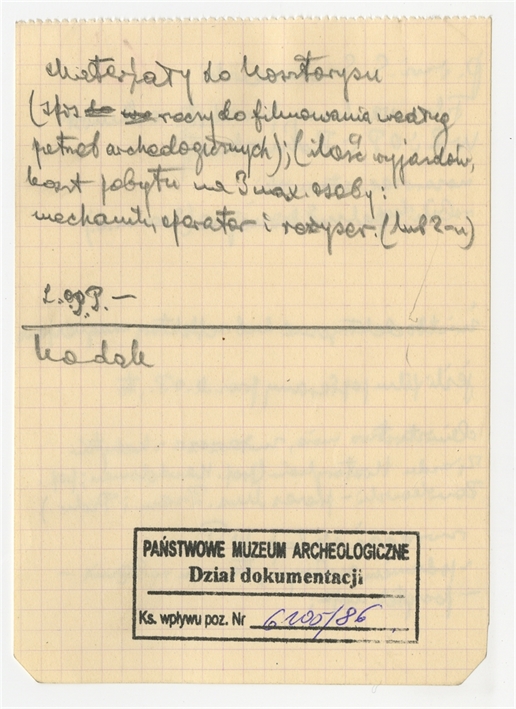 Materjały do kosztorysu
(spis do rzeczy do filmowania według
potrzeb archeologicznych); (ilość wyjazdów,
koszt pobytu na 3 max. osoby:
mechanik, operator i reżyser. (lub 2-u)
L.O.P.P. —
Kodak
PAŃSTWOWE MUZEUM ARCHEOLOGICZNE
Dział dokumentacji
Ks. wpływu poz. Nr 6200/86